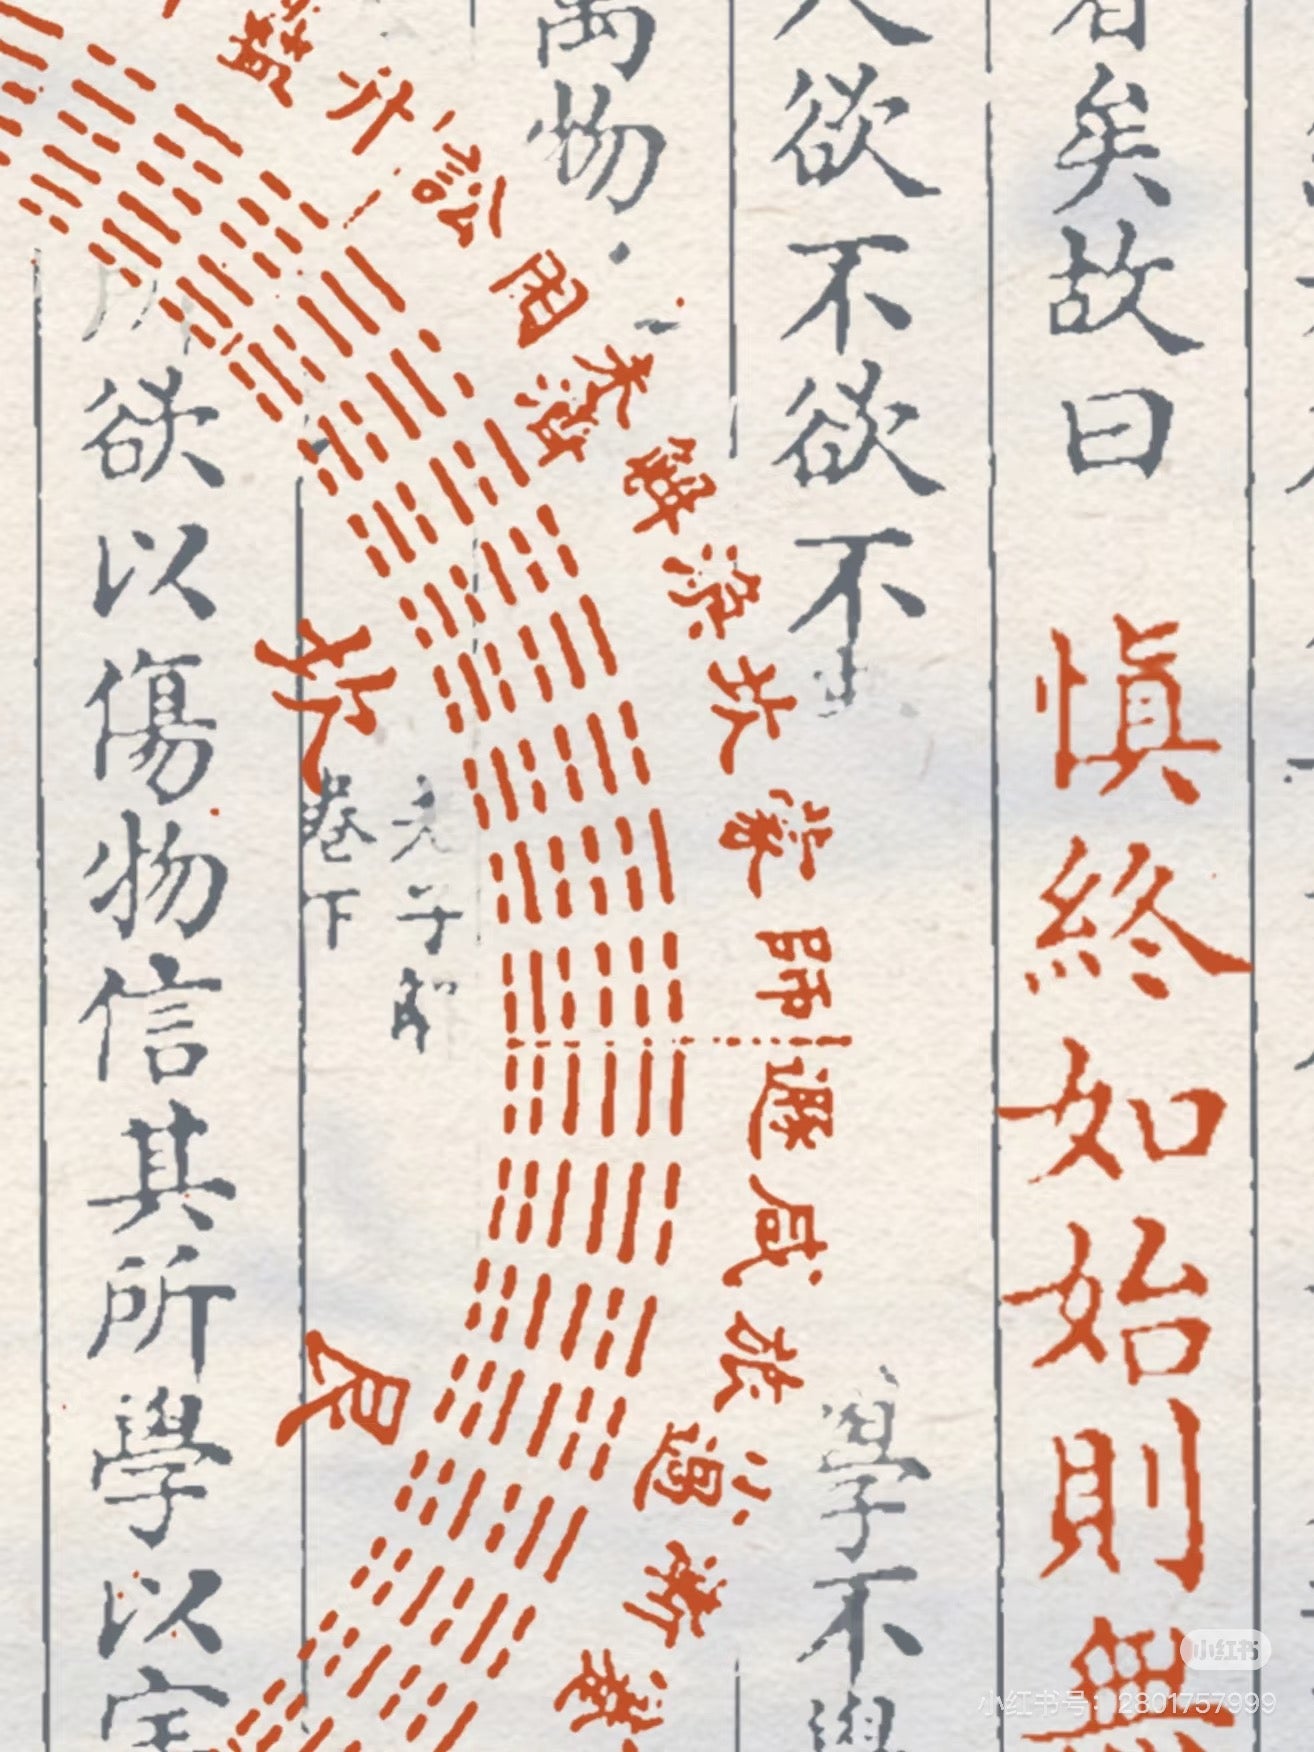 矣故曰
慎終如始則無
欲不欲不
學不學
萬物
蠱
升
訟
困
未濟
解
渙
坎
蒙
師
遯
咸
旅
小過
漸
蹇
坎
艮
老子解
卷下
所欲以傷物信其所學以
小红书
小红书号：2801757999